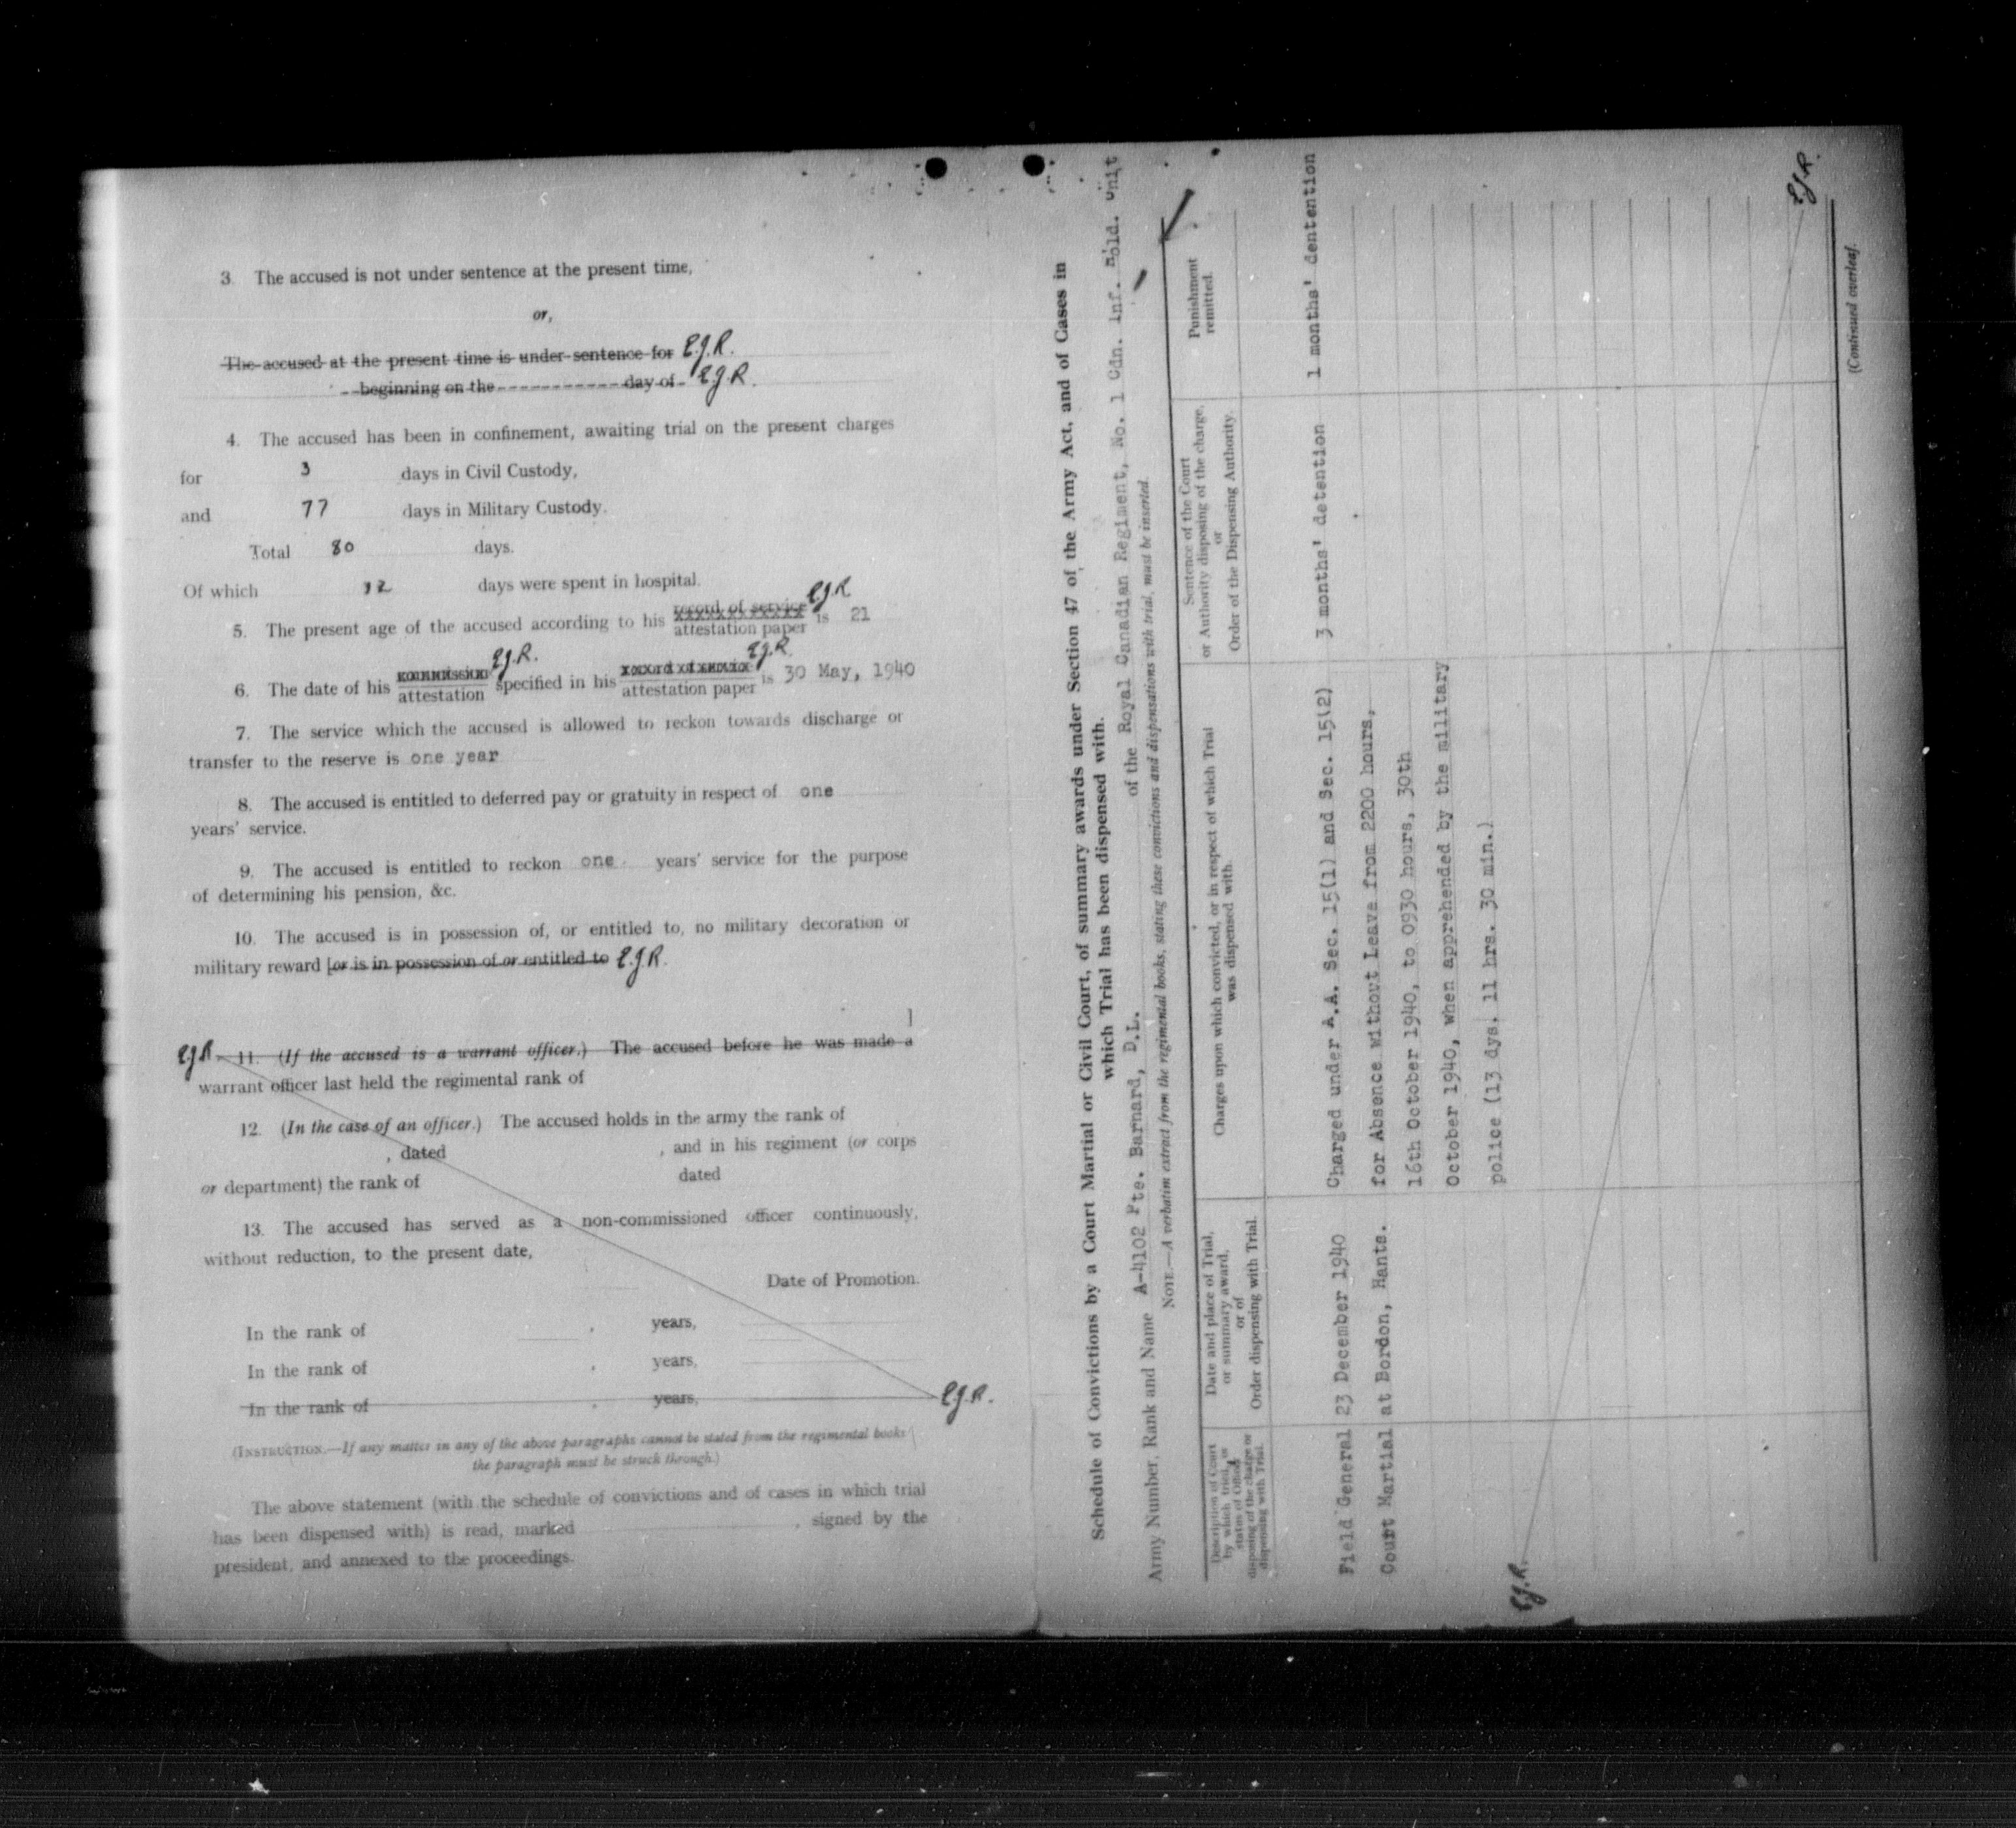 3. The accused is not under sentence at the present time,
or,
The accused at the present time is under sentence for E.J.R.
beginning on the day of E.J.R.
4. The accused has been in confinement, awaiting trial on the present charges
for 3 days in Civil Custody,
and 77 days in Military Custody.
Total 80 days.
Of which 12 days were spent in hospital.
record of service E.J.R
5. The present age of the accused according to his attestation paper is 21
commission E.J.R. record of service E.J.R.
6. The date of his attestation specified in his attestation paper is 30 May, 1940
7. The service which the accused is allowed to reckon towards discharge or
transfer to the reserve is one year
8. The accused is entitled to deferred pay or gratuity in respect of one
years' service.
9. The accused is entitled to reckon one years' service for the purpose
of determining his pension, &c.
10. The accused is in possession of, or entitled to, no military decoration or
military reward [or is in possession of or entitled to E.J.R.
]
E.J.R. 11. (If the accused is a warrant officer.) The accused before he was made a
warrant officer last held the regimental rank of
12. (In the case of an officer.) The accused holds in the army the rank of
, dated , and in his regiment (or corps
or department) the rank of dated
13. The accused has served as a non-commissioned officer continuously,
without reduction, to the present date,
Date of Promotion.
In the rank of , years,
In the rank of , years,
In the rank of , years, E.J.R.
(INSTRUCTION.—If any matter in any of the above paragraphs cannot be stated from the regimental books
the paragraph must be struck through.)
The above statement (with the schedule of convictions and of cases in which trial
has been dispensed with) is read, marked , signed by the
president, and annexed to the proceedings.
Schedule of Convictions by a Court Martial or Civil Court, of summary awards under Section 47 of the Army Act, and of Cases in
which Trial has been dispensed with.
Army Number, Rank and Name A-4102 Pte. Barnard, D.L. of the Royal Canadian Regiment, No. 1 Cdn. Inf. Hold. Unit
NOTE.—A verbatim extract from the regimental books, stating these convictions and dispensations with trial, must be inserted.
Description of Court
by which tried, or
status of Officer
disposing of the charge or
dispensing with Trial.
Date and place of Trial,
or summary award,
or of
Order dispensing with Trial.
Charges upon which convicted, or in respect of which Trial
was dispensed with.
Sentence of the Court
or Authority disposing of the charge,
or
Order of the Dispensing Authority.
Punishment
remitted.
Field General
Court Martial
23 December 1940
at Bordon, Hants.
Charged under A.A. Sec. 15(1) and Sec. 15(2)
for Absence without Leave from 2200 hours,
16th October 1940, to 0930 hours, 30th
October 1940, when apprehended by the military
police (13 dys. 11 hrs. 30 min.)
3 months' detention
1 months' dentention
E.J.R.
E.J.R.
(Continued overleaf.